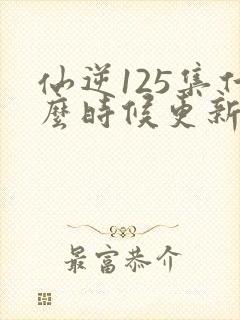 仙逆125集什
麼時候更新
最富恭介